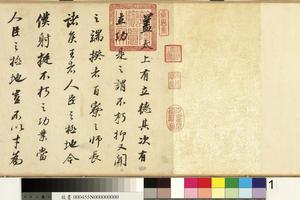 蓋太上有立德其次有
立功是之謂不朽抑又聞
之端揆者百寮之師長
諸侯王者人臣之極地今
僕射挺不朽之功業當
人臣之極地豈不以才為
故書 000455N000000000
1